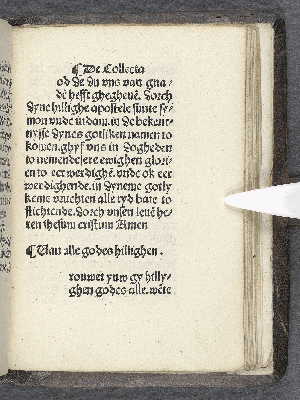 ¶ De Collecta
od de du vns van gna⸗
dē hefft ghegheuē. dorch
dyne hillighe apostele sunte sy⸗
mon vnde iudam. in de bekent⸗
nysse dynes gotliken namen to
komen. ghyf vns in dogheden
to nemende ere ewighen glori⸗
en to eer werdighē. vnde ok eer
werdighende. in dyneme gotly
keme vruchten alle tyd bate to
stichtende. dorch vnsen leuē he⸗
ren ihesum cristum Amen
¶ Van alle godes hillighen .
rouwet yuw gy hilly⸗
ghen godes alle. wēte